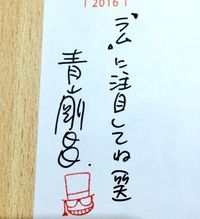 2016
『ラム』に注目してね(笑)
青山剛昌